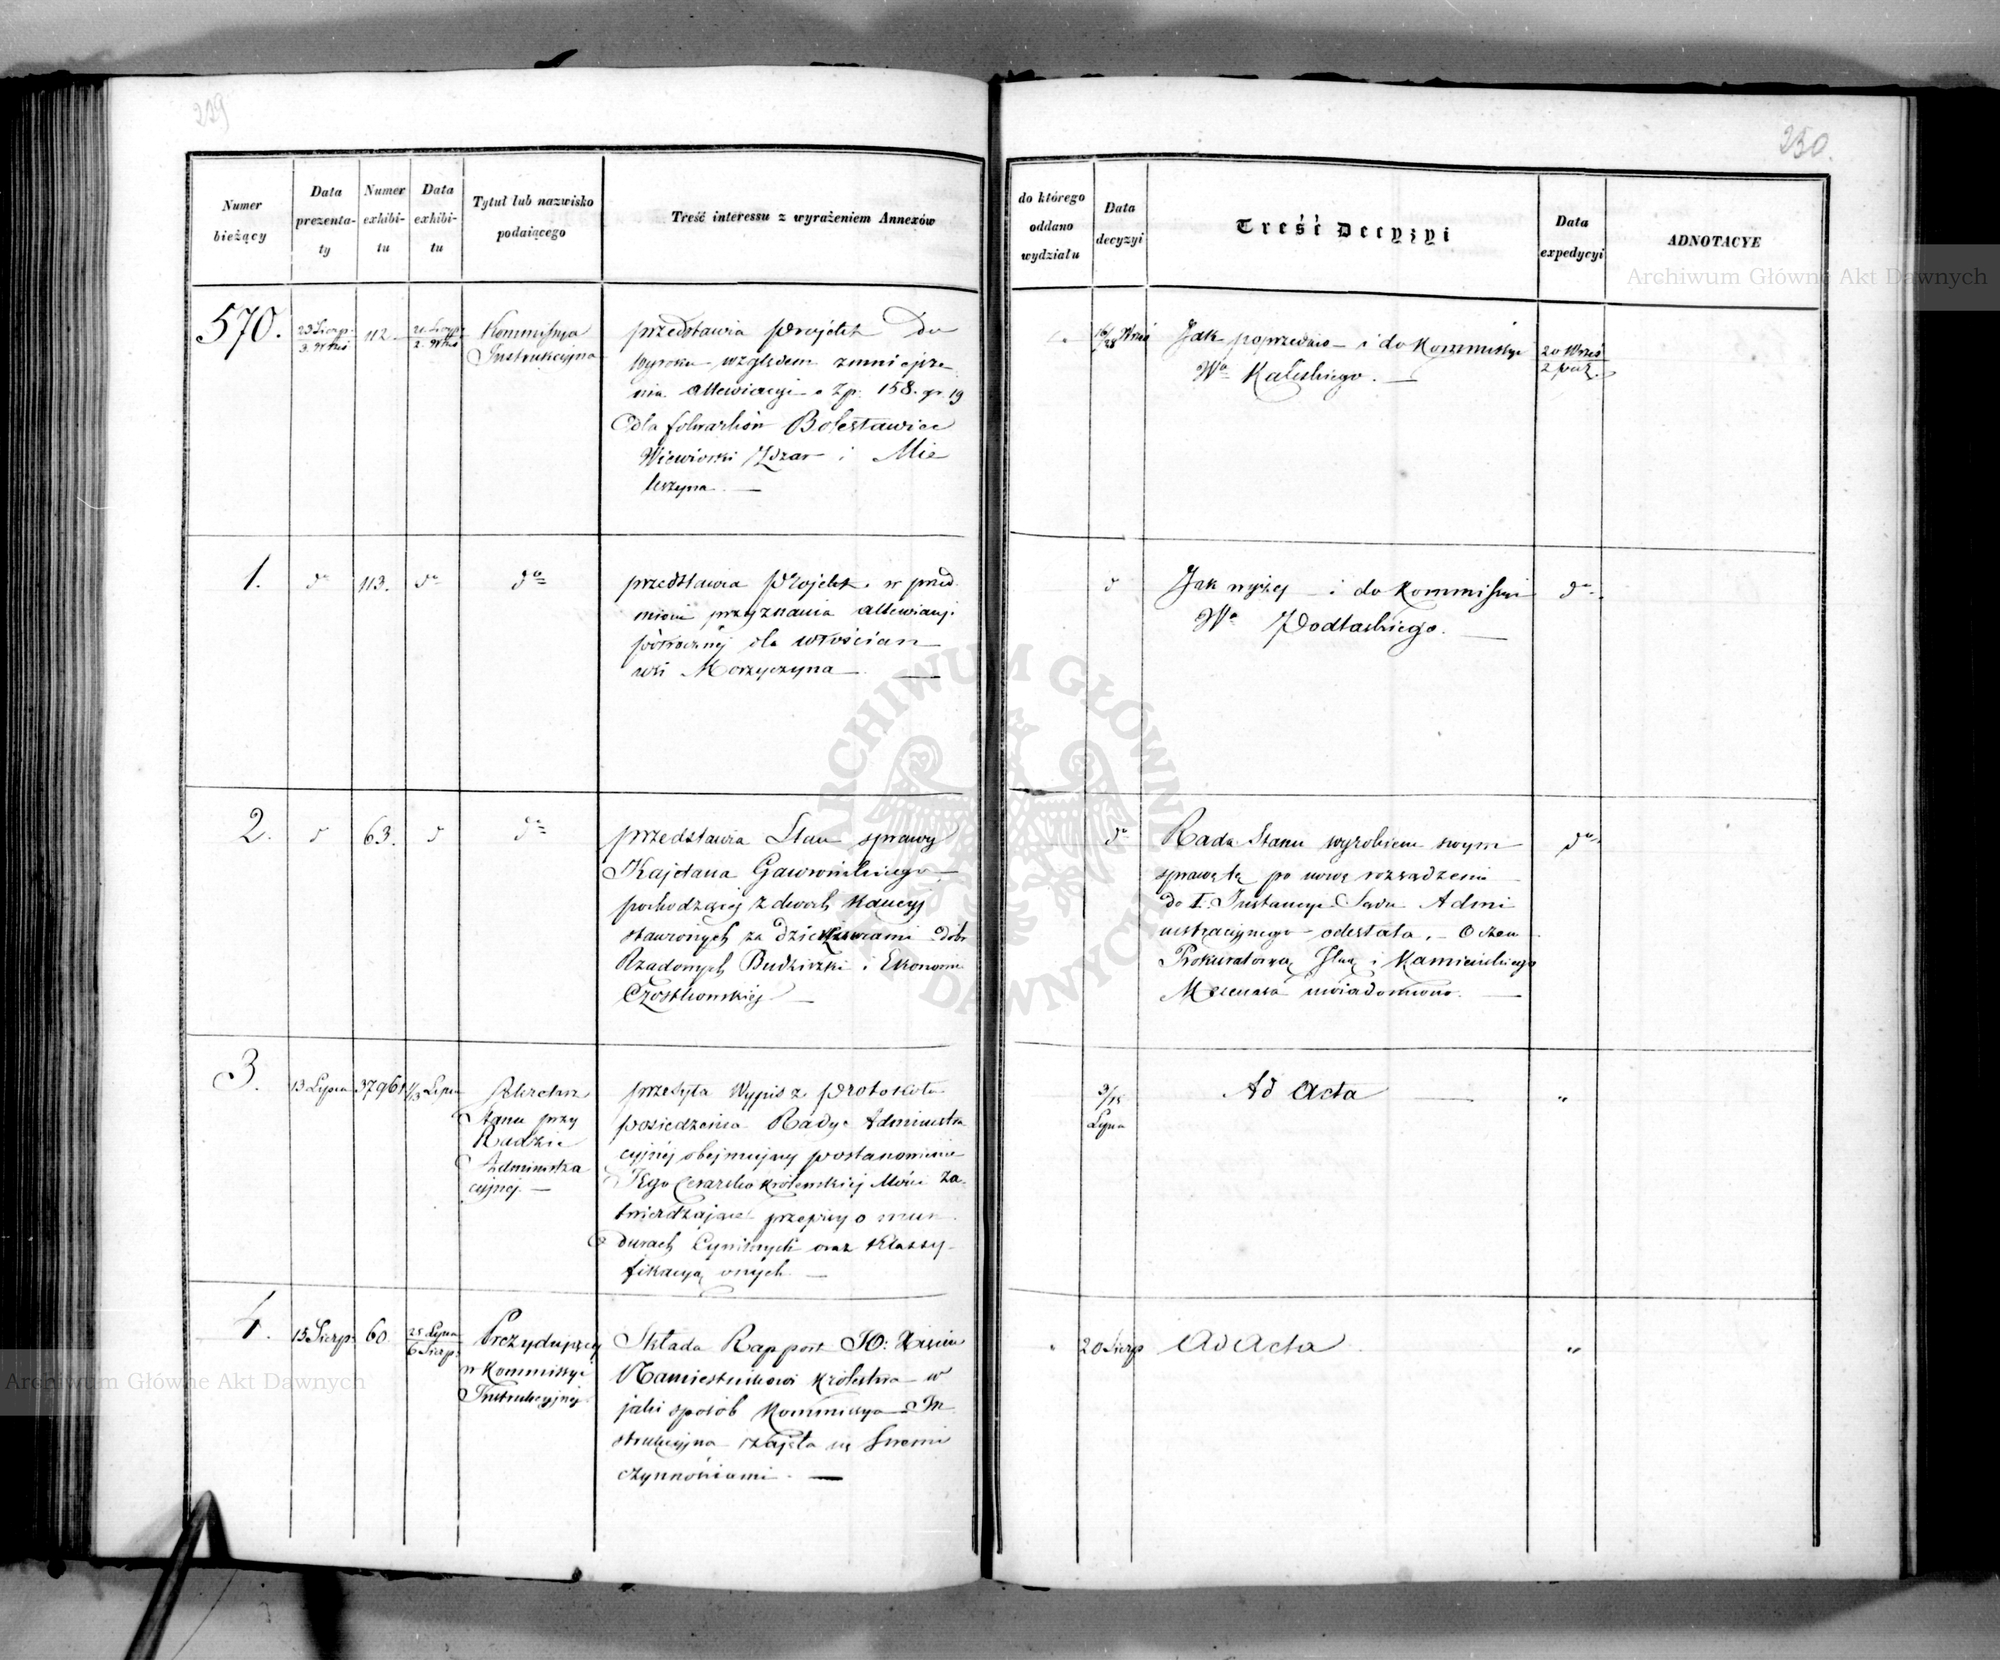 229
Numer bieżący
Data prezenta-ty
Numer exhibi-tu
Data exhibi-tu
Tytuł lub nazwisko podaiącego
Treść interessu z wyrażeniem Annexów
570.
23 Sierp.
3. Wrześ
112
21 Sierp.
2. Wrześ
Kommissya
Instrukcyjna
przedstawia Projekt Do
wyroku względem zmniejsze
nia allewiacyi o Zp. 158. gr. 19
dla folwarków Bolesławiec
Wiewiorki Zdzar i Mie
leszyna. —
1.
do
113.
do
do
przedstawia Projekt w przed
miocie przyznania allewiacyi
półrocznej dla włościan
wsi Morzyczyna —
2.
do
63.
do
do
przedstawia Stan sprawy
Kajetana Gawrońskiego
pochodzącej z dwoch Kaucyj
stawionych za dzierżawami dobr
Rządowych Budziszki i Ekonomi
Czostkowskiej —
3.
13 Lypca
37961
1/13 Lypca
Sekretarz
Stanu przy
Radzie
Administra
cyjnej. —
przesyła Wypis z Protokołu
posiedzenia Rady Administra
cyjnej obejmujący postanowienie
Jego Cesarsko Królewskiej Mości Za-
twierdzające przepisy o mun
durach Cywilnych oraz Klassy-
fikacyą onych. —
4.
15 Sierp.
60
25 Lypca
6 Sierp.
Prezydujący
w Kommissyi
Instrukcyjnej
Składa Rapport JO: Xięciu
Namiestnikowi Królestwa w
jaki sposób Kommissya In
strukcyjna zajęła się Swemi
czynnościami. —
250.
do którego oddano wydziału
Data decyzyi
Treść Decyzyi
Data expedycyi
ADNOTACYE
16/28 Wrześ
Jak poprzednio — i do Kommissyi
Wa Kaliskiego. —
20 Wrześ
2 paź.
do
Jak wyżej — i do Kommissyi
Wa Podlaskiego. —
do
do
Rada Stanu wyrokiem swym
sprawę tę po nowe rozsądzenie
do I. Instancyi Sądu Admi
nistracyjnego odesłała. — O czem
Prokuratoryą Jlną i Kamieńskiego
Mecenasa uwiadomiono. —
do
3/15
Lypca
Ad Acta —
"
20 Sierp
Ad Acta
"
Archiwum Główne Akt Dawnych
Archiwum Główne Akt Dawnych
ARCHIWUM GŁÓWNE AKT DAWNYCH